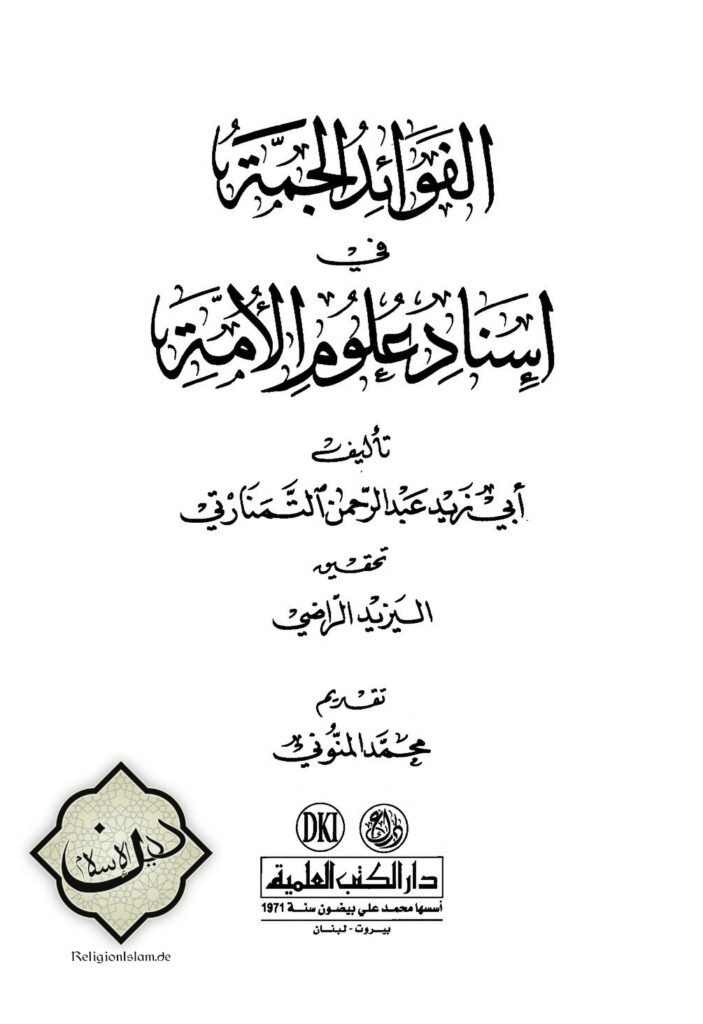 الفَوَائِدُ الجَمَّةُ
في
إِسْنَادِ عُلُومِ الأُمَّةِ
تأليف
أبي زيد عَبْد الرّحمن التَّمَنَارْتي
تحقيق
اليزيد الرّاضي
تقديم
محمّد المنُّوني
دين الإسلام
DKI
دار الكتب العلمية
أسسها محمد علي بيضون سنة 1971
بيروت - لبنان
ReligionIslam.de